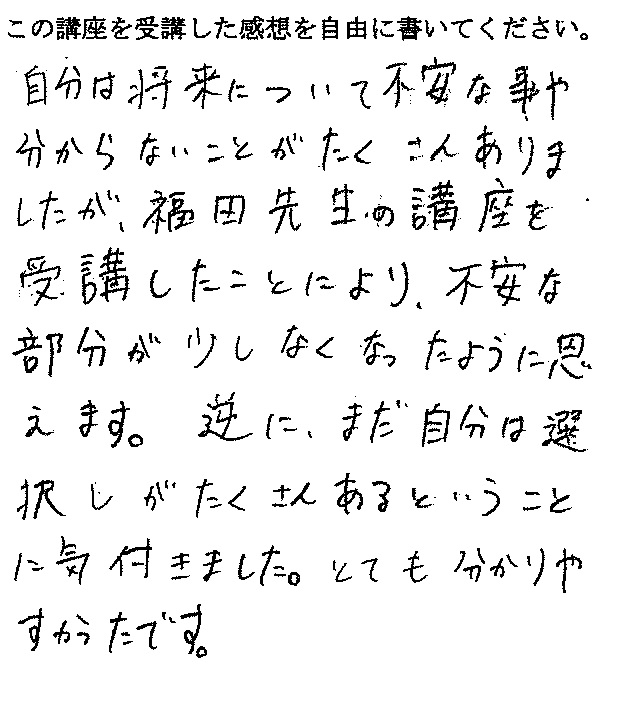 この講座を受講した感想を自由に書いてください。
自分は将来について不安な事や
分からないことがたくさんありま
したが、福田先生の講座を
受講したことにより、不安な
部分が少しなくなったように思
えます。逆に、まだ自分は選
択しがたくさんあるということ
に気付きました。とても分かりや
すかったです。